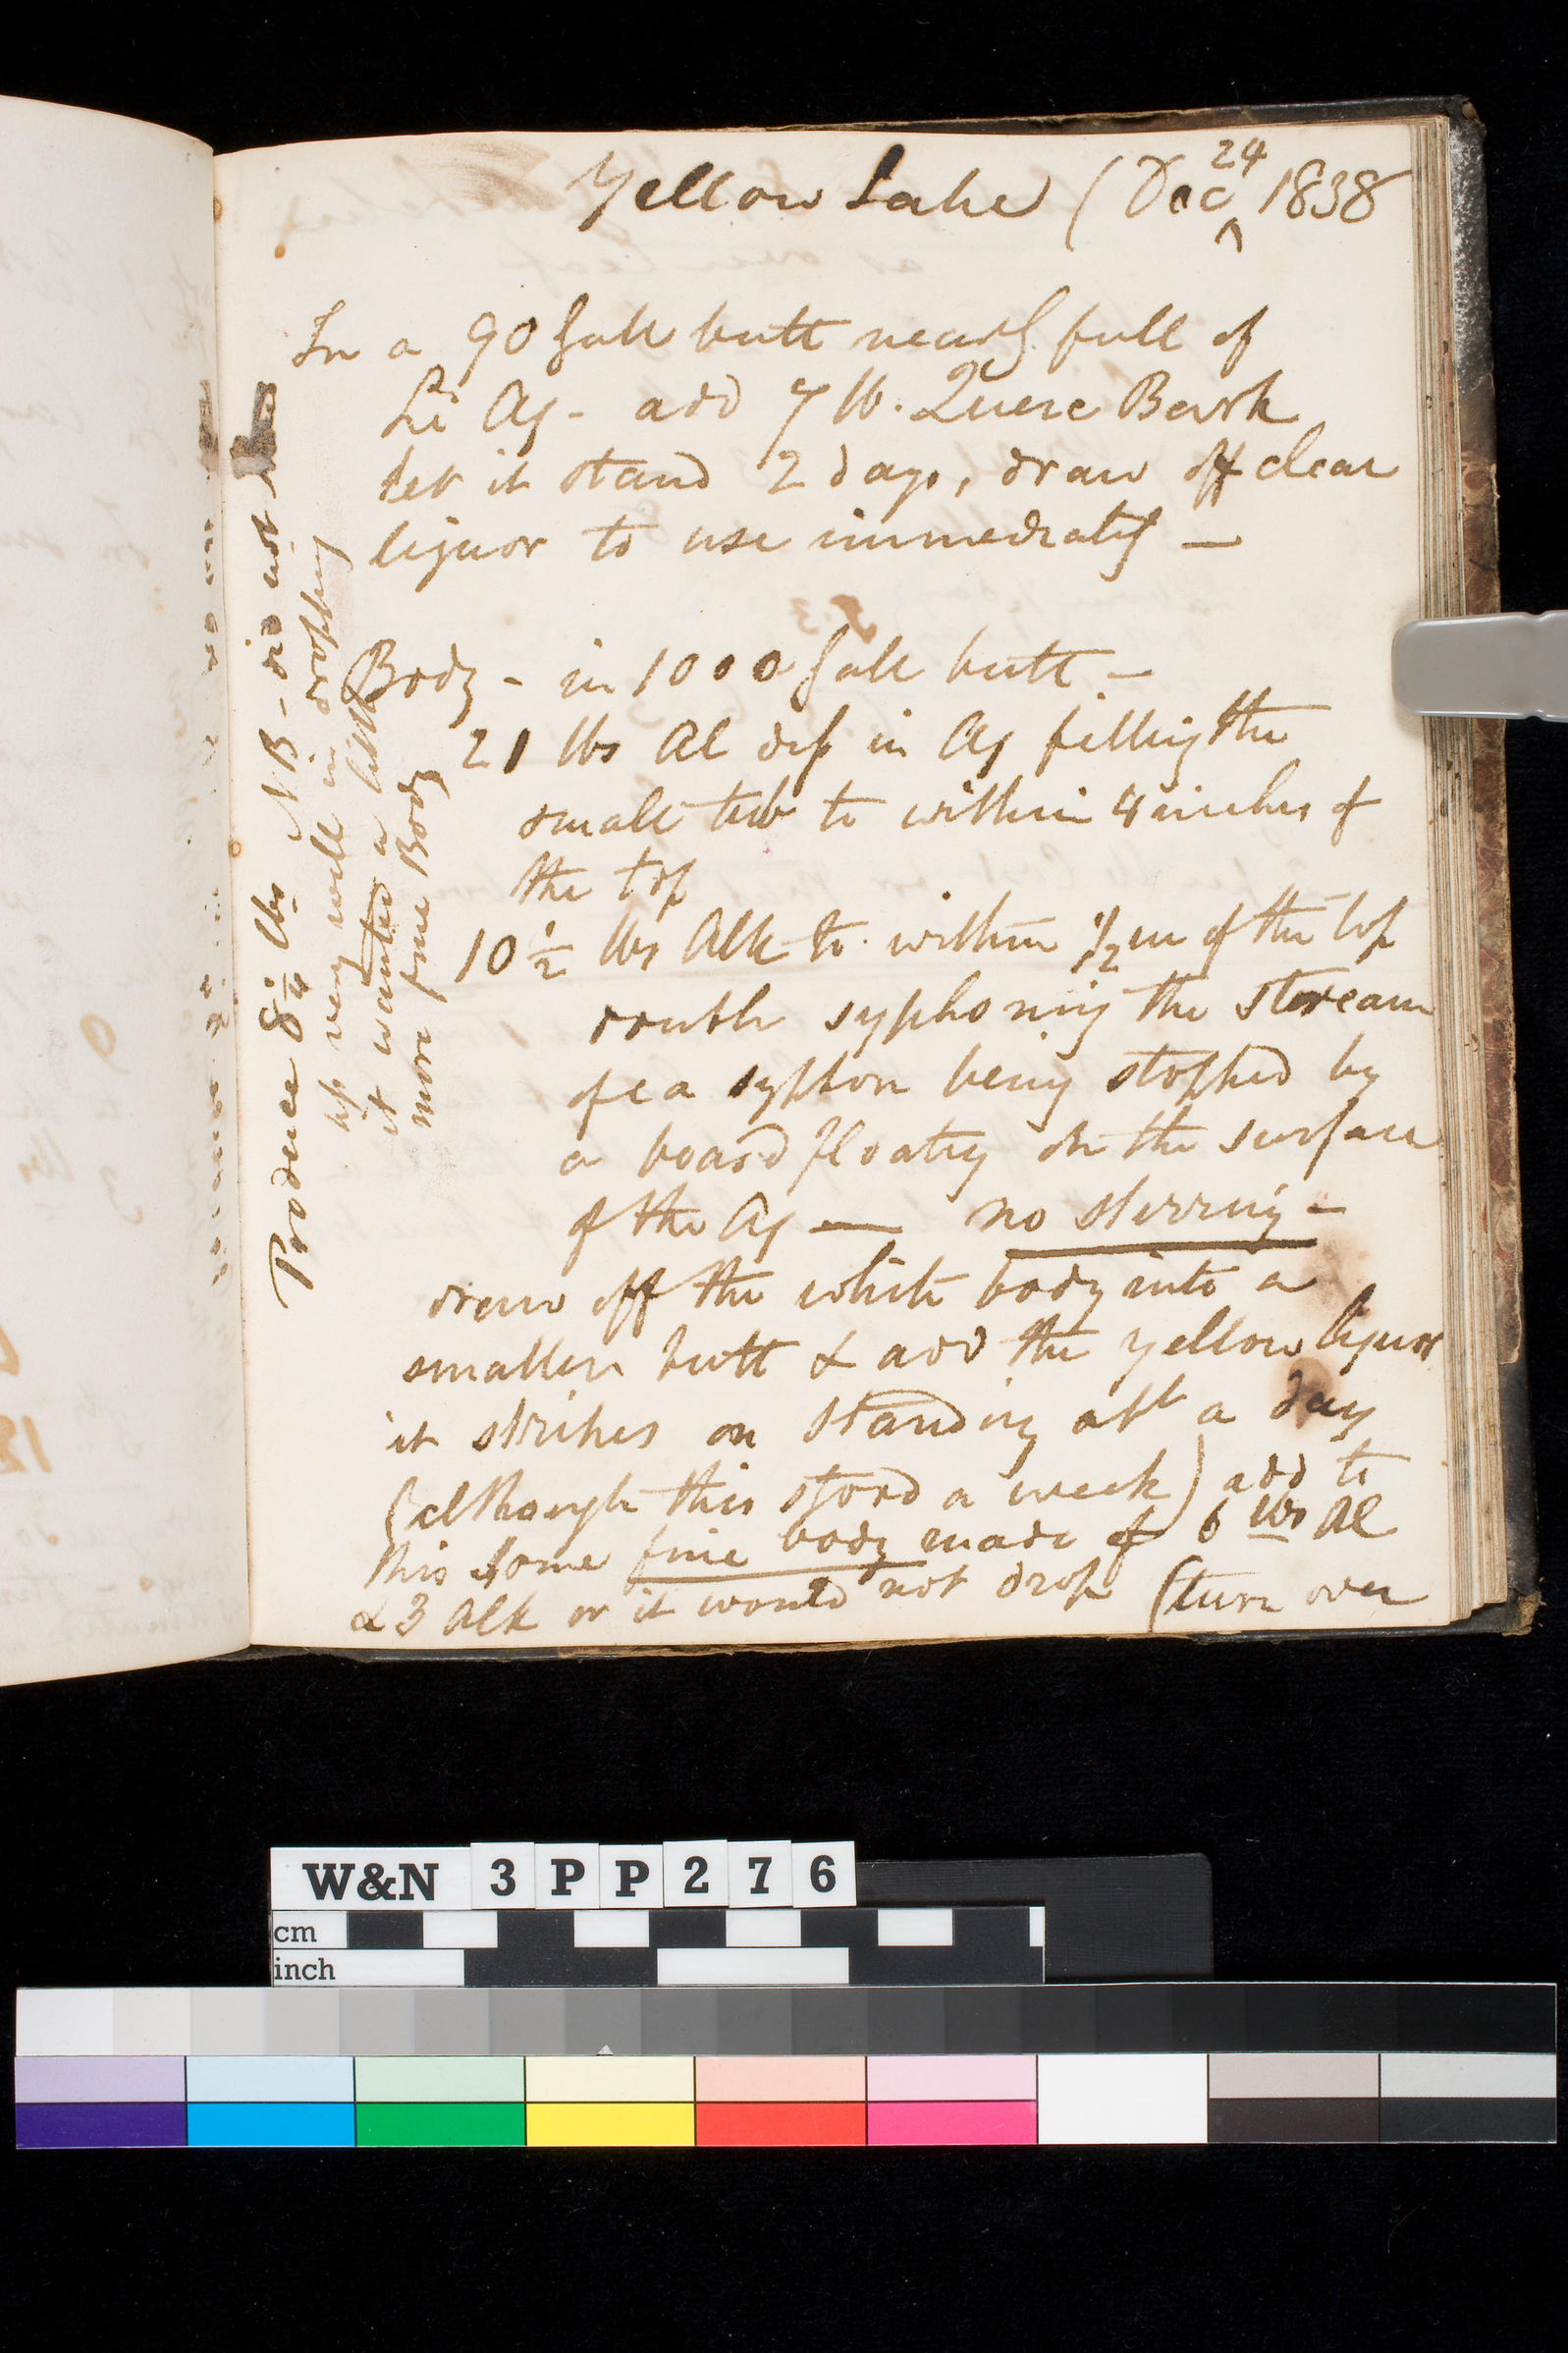 Yellow Lake (Dec 24 1838
In a 90 Gall butt nearly full of
Li Aq - add 7 lb. Querc Bark
let it stand 2 days, draw off clear
liquor to use immediately —
Body - in 1000 Gall butt —
21 lbs Al dis in Aq filling the
small tub to within 4 inches of
the top
10 1/2 lbs Alk to within 1/2 in of the top
double syphoning the stream
of ea syphon being stopped by
a board floating on the surface
of the Aq — no stirring —
draw off the white body into a
smaller butt & add the yellow liquor
it strikes on standing abt a day
(although this stood a week) add to
this some fine body made of 6 lbs Al
& 3 Alk or it would not drop (turn over
Produce 8 1/4 lbs N B - did not
up very well in dropping
it wanted a little
more fine Body
W&N 3PP276
cm
inch